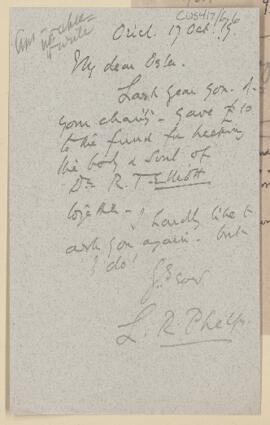 Am not able
to write
CUS417/6/6
Oriel. 17 Oct. 19
My dear Osler
Last year you - of
your charity - gave £10
to the fund for keeping
the body & soul of
Dr. R. T. Elliott
together - I hardly like to
ask you again - but
I do!
L. R. Phelps.